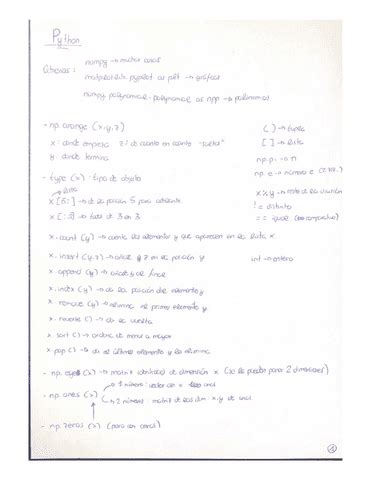 Python
numpy → matrices
Librerías: matplotlib.pyplot as plt → gráficas
numpy.polynomial.polynomial as npp → polinomios
- np.arange (x,y,z) ( ) → tupla
x: donde empieza z: de cuanto en cuanto "salta" [ ] → lista
y: donde termina np.pi → π
- type (x): tipo de objeto np.e → número e
lista x%y → resto de la división
x [5:] → de la posición 5 para adelante != distinto
x [::3] → todos de 3 en 3 == igual (comparativo)
x.count (y) → cuenta los elementos y que aparecen en la lista x
x.insert (y,z) → añade z en la posición y int → entero
x.append (y) → añade y al final
x.index (y) → da la posición del elemento y
x.remove (y) → elimina el primer elemento y
x.reverse () → da la vuelta
x.sort () → ordena de menor a mayor
x.pop () → da el último elemento y lo elimina
- np.eye (x) → matriz identidad de dimensión x (se le pueden poner 2 dimensiones)
1 número: vector con x unos
- np.ones (x)
2 números: matriz de dim: x,y de unos
- np.zeros (x) (para con ceros)
1